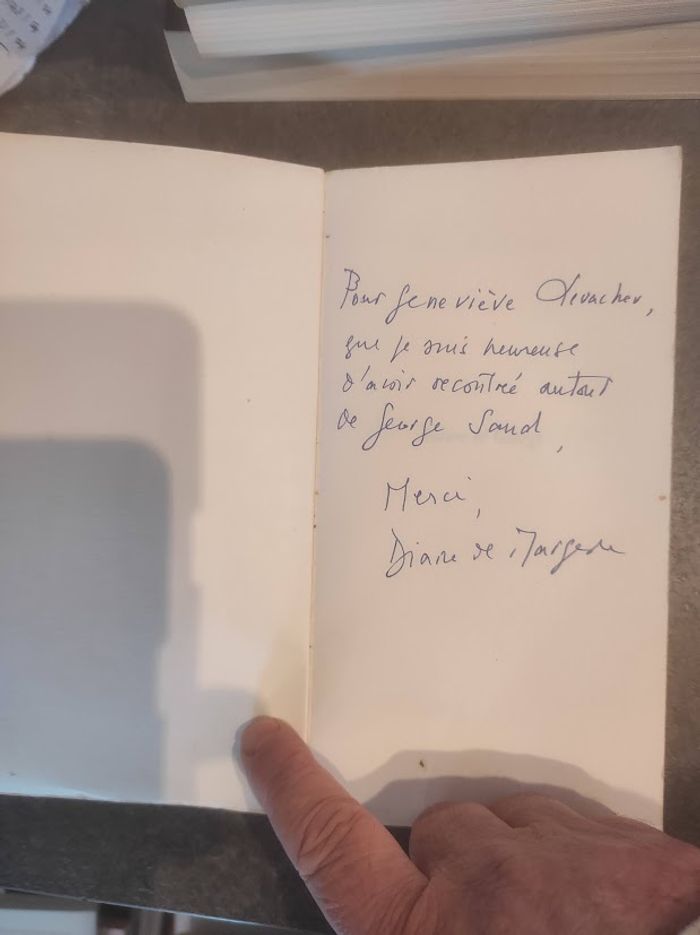 Pour Geneviève
que je suis heureuse
d'avoir recontré autour
de George Sand,
Merci,
Diane de Margerie